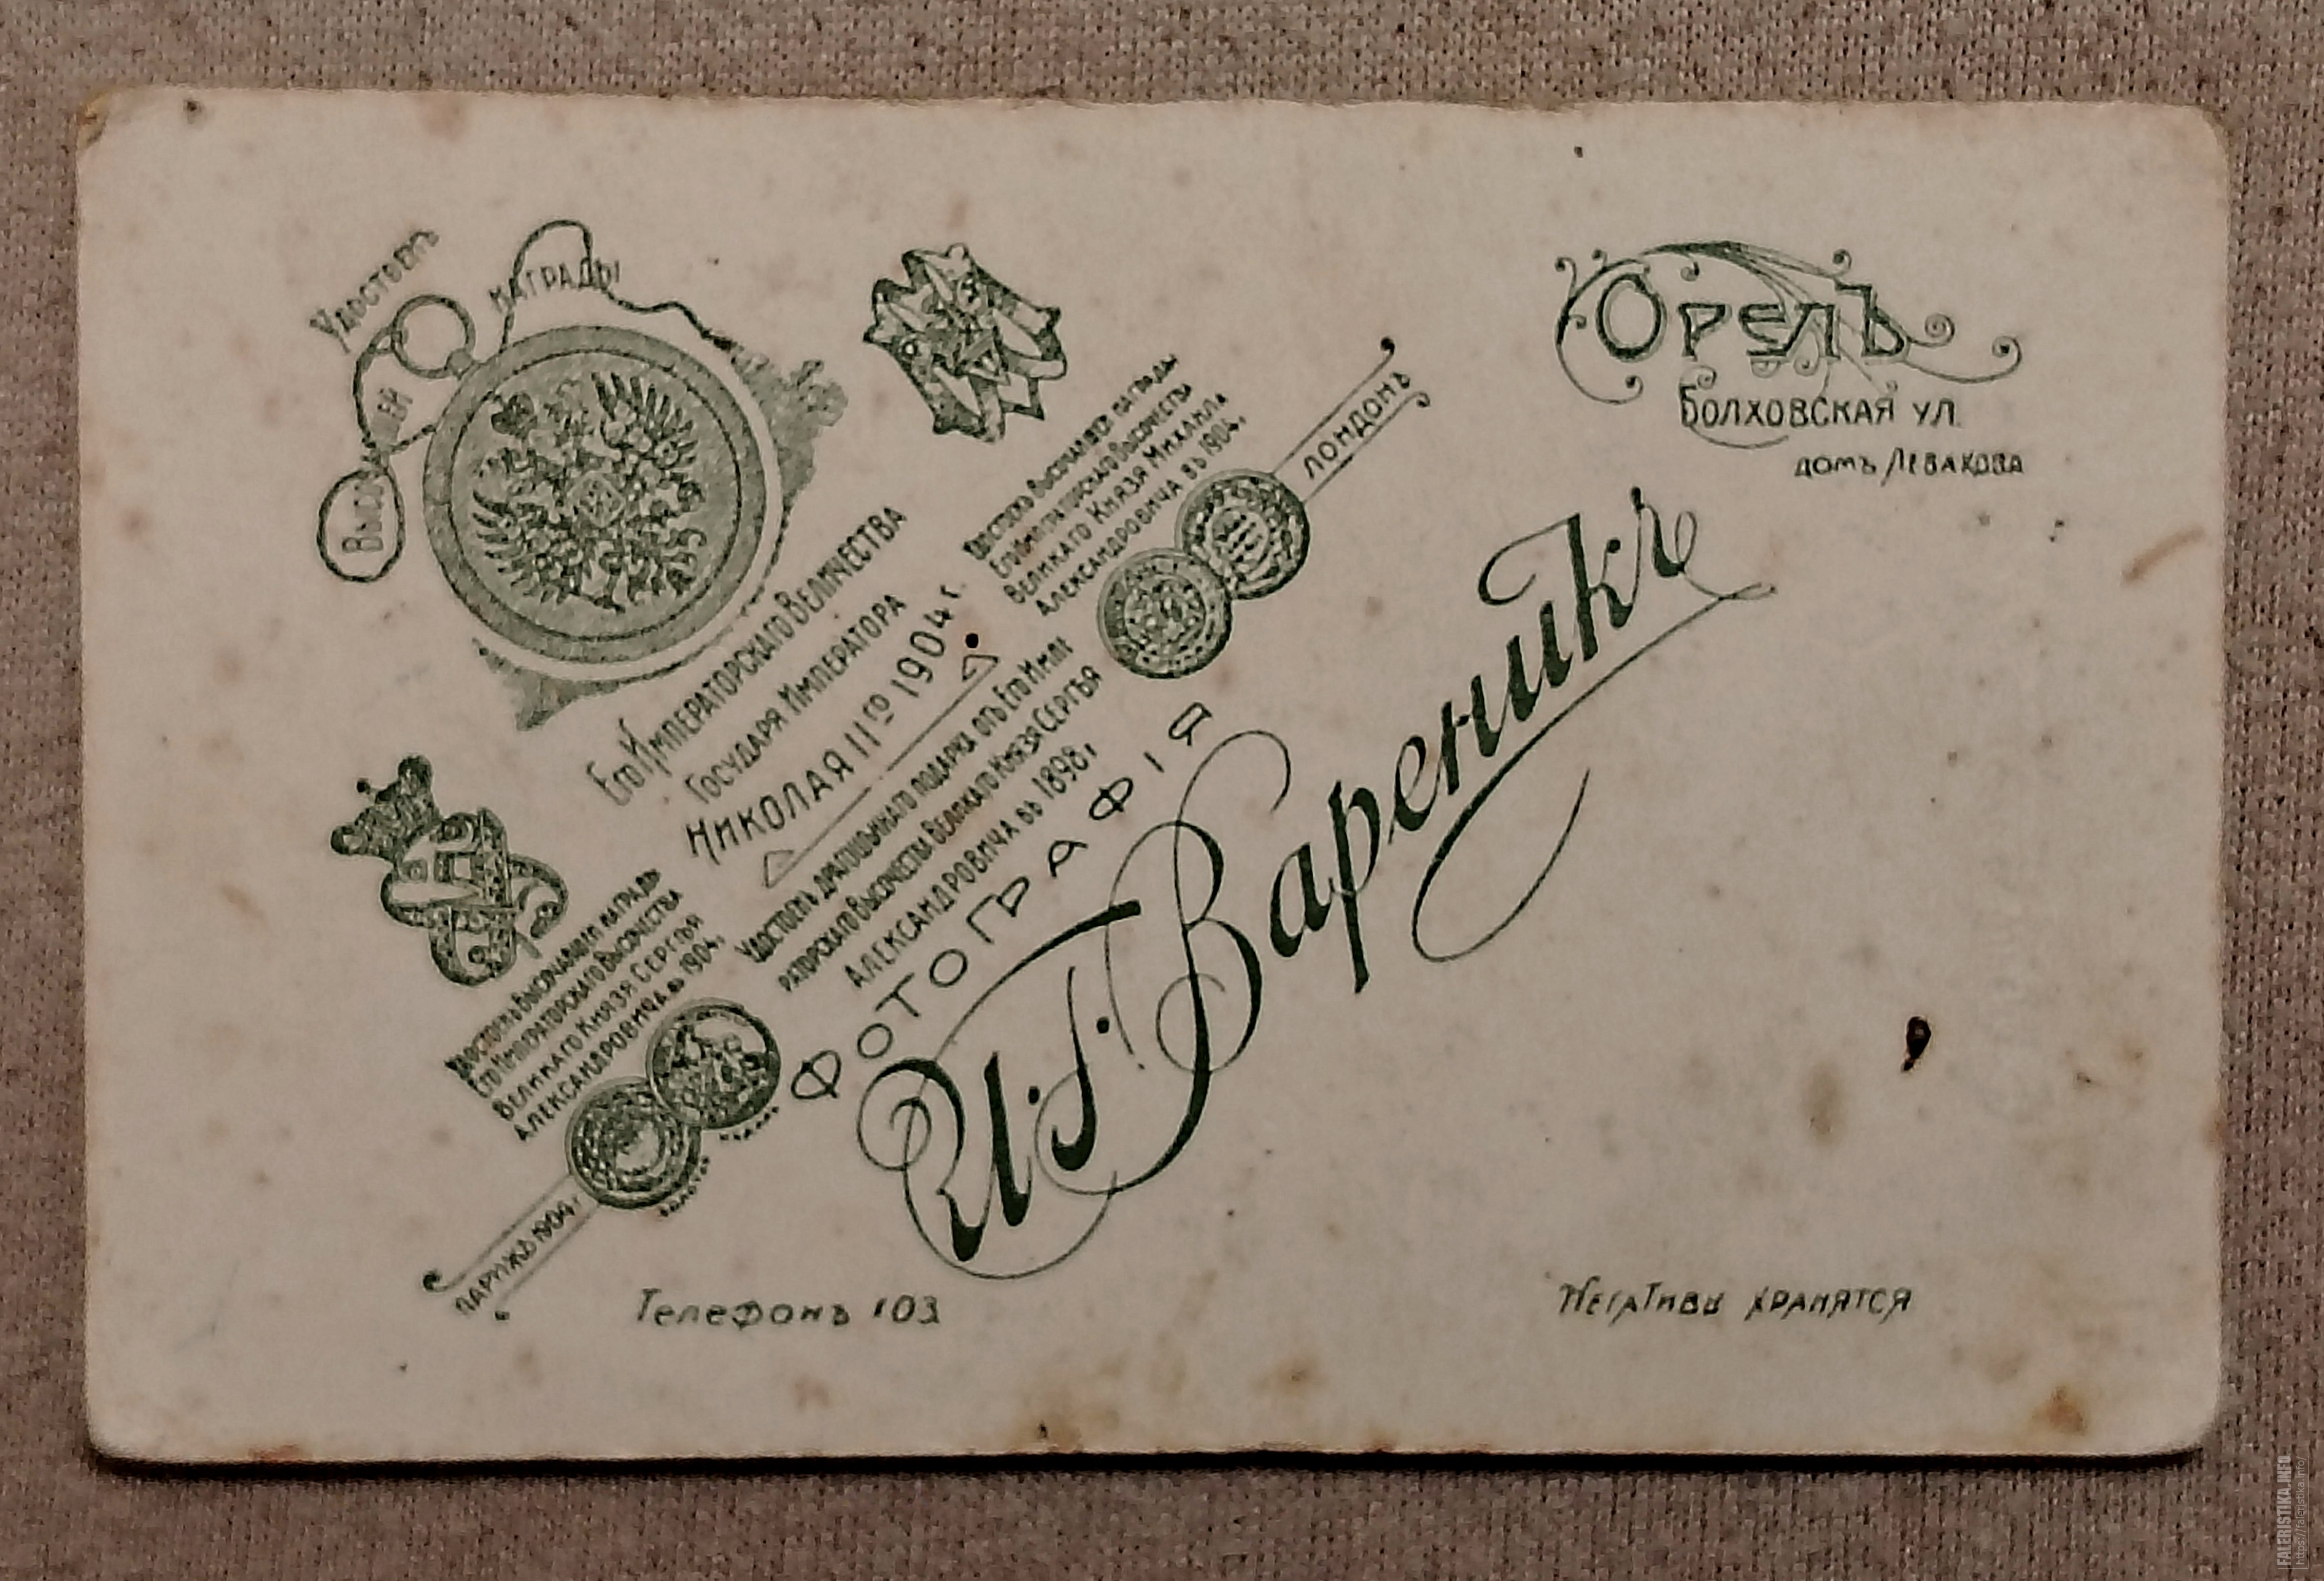 Удостоенъ
Высочайшей
награды
Его Императорскаго Величества
Государя Императора
Николая IIго 1904 г.
Удостоенъ Высочайшей награды
Его Императорскаго Высочества
Великаго Князя Михаила
Александровича въ 1904г
Лондонъ
Удостоенъ Высочайшей награды
Его Императорскаго Высочества
Великаго Князя Сергѣя
Александровича въ 1904г
Парижъ 1904г
Удостоенъ драгоцѣннаго подарка отъ Его Импе
раторскаго Высочества Великаго Князя Сергѣя
Александровича въ 1898г
Фотографія
И. Г. Вареникъ
Орелъ
Болховская ул.
домъ Левакова
Телефонъ 103
Негативы хранятся
FALERISTIKA.INFO
https://faleristika.info/